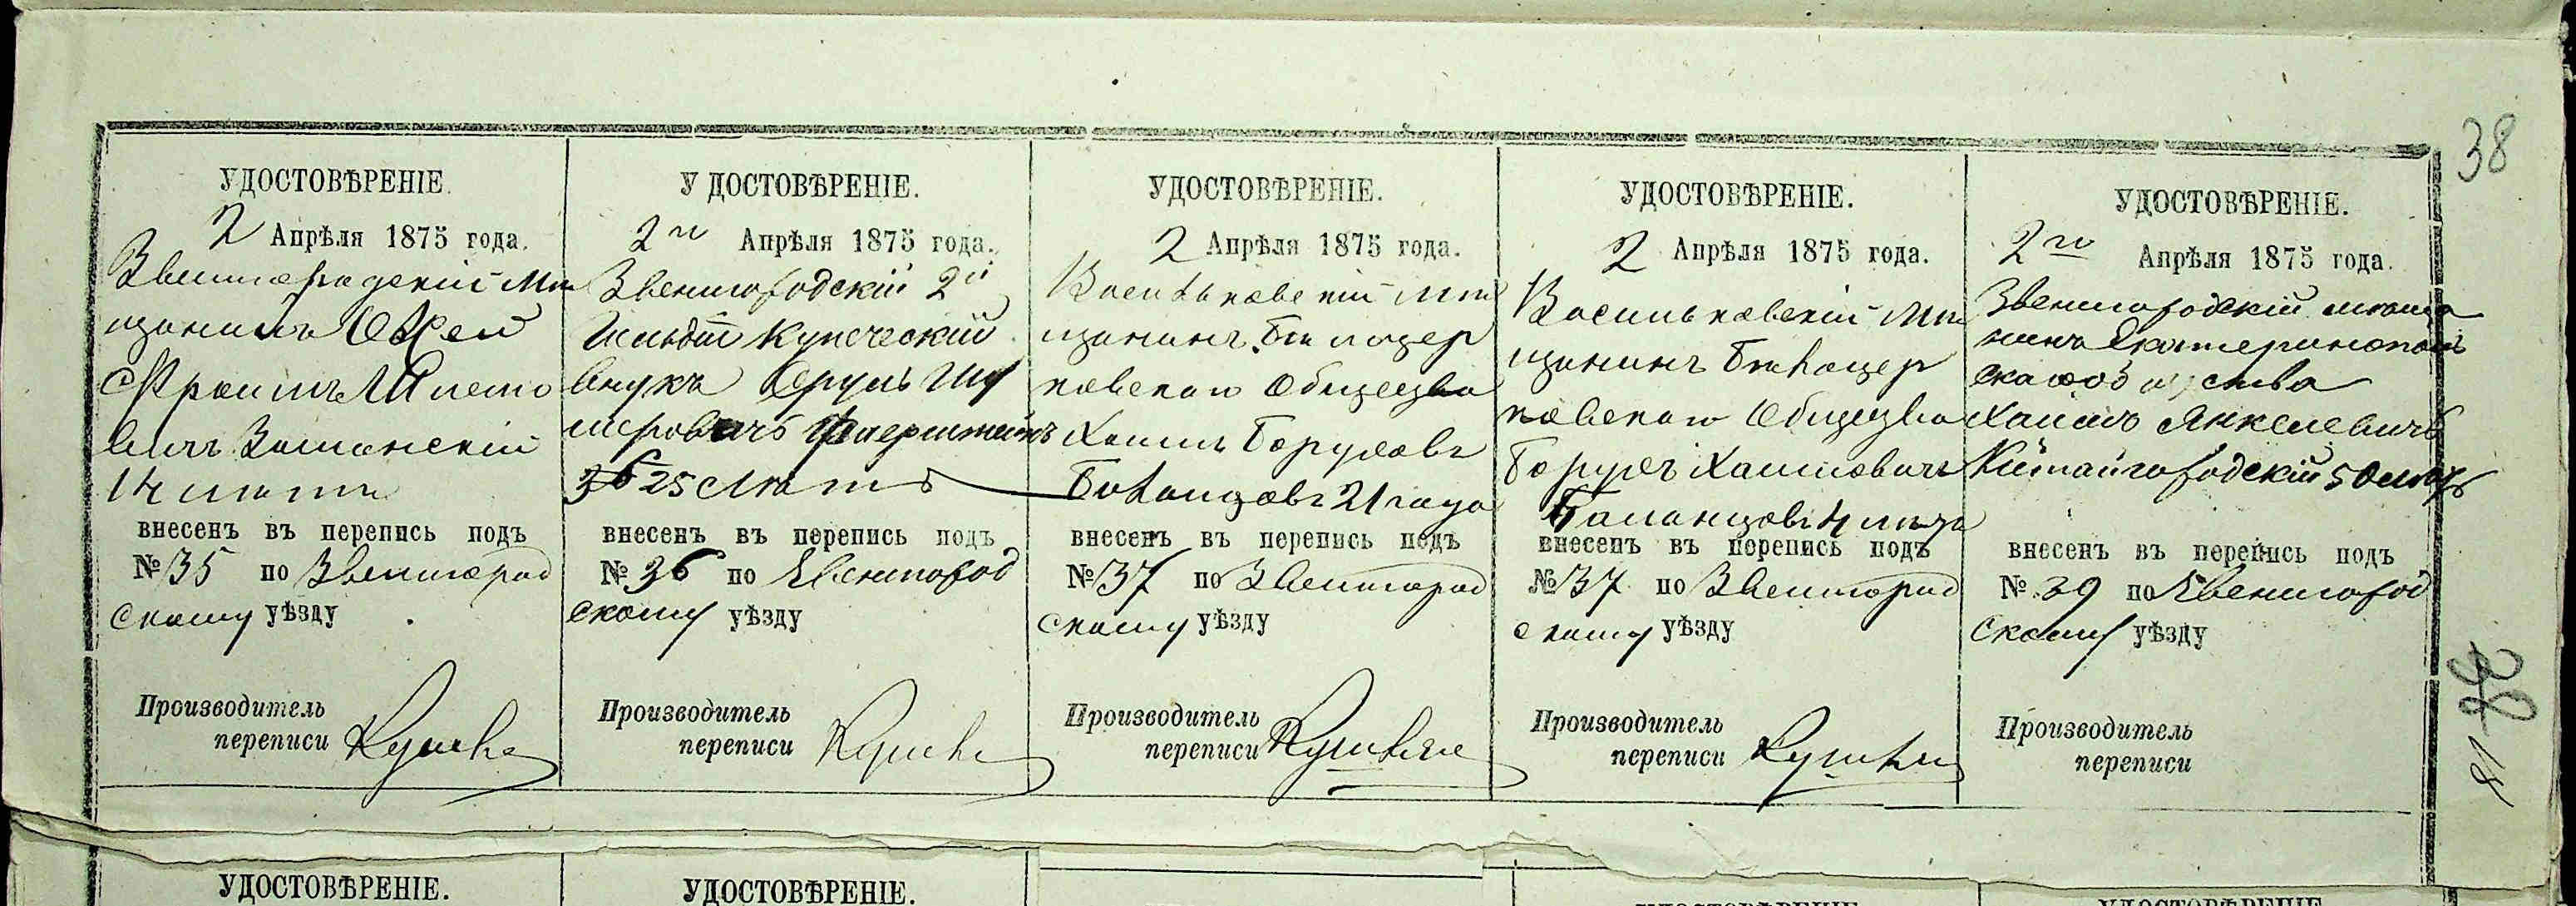 38
УДОСТОВѢРЕНІЕ.
2 Апрѣля 1875 года.
Звенигородскій мѣ
щанинъ
вичъ
14 лѣтъ
внесенъ въ перепись подъ
№ 35 по Звенигород
скому уѣзду
Производитель
переписи
УДОСТОВѢРЕНІЕ.
2го Апрѣля 1875 года.
Звенигородскій 2й
Гильдіи Купеческій
внукъ Сруль
25 лѣтъ
внесенъ въ перепись подъ
№ 36 по Звенигород
скому уѣзду
Производитель
переписи
УДОСТОВѢРЕНІЕ.
2 Апрѣля 1875 года.
Васильковскій мѣ
щанинъ Бѣлоцер
ковскаго Общества
Хаимъ Боруховъ
21 года
внесенъ въ перепись подъ
№ 37 по Звенигород
скому уѣзду
Производитель
переписи
УДОСТОВѢРЕНІЕ.
2 Апрѣля 1875 года.
Васильковскій мѣ
щанинъ Бѣлоцер
ковскаго Общества
Борухъ Хаимовичъ
внесенъ въ перепись подъ
№ 37 по Звенигород
скому уѣзду
Производитель
переписи
УДОСТОВѢРЕНІЕ.
2го Апрѣля 1875 года.
Звенигородскій мѣща
нинъ Екатеринополь
скаго общества
Хаимъ Янкелевичъ
Китайгородскій 50 лѣтъ
внесенъ въ перепись подъ
№ 39 по Звенигород
скому уѣзду
Производитель
переписи
УДОСТОВѢРЕНІЕ.
УДОСТОВѢРЕНІЕ.